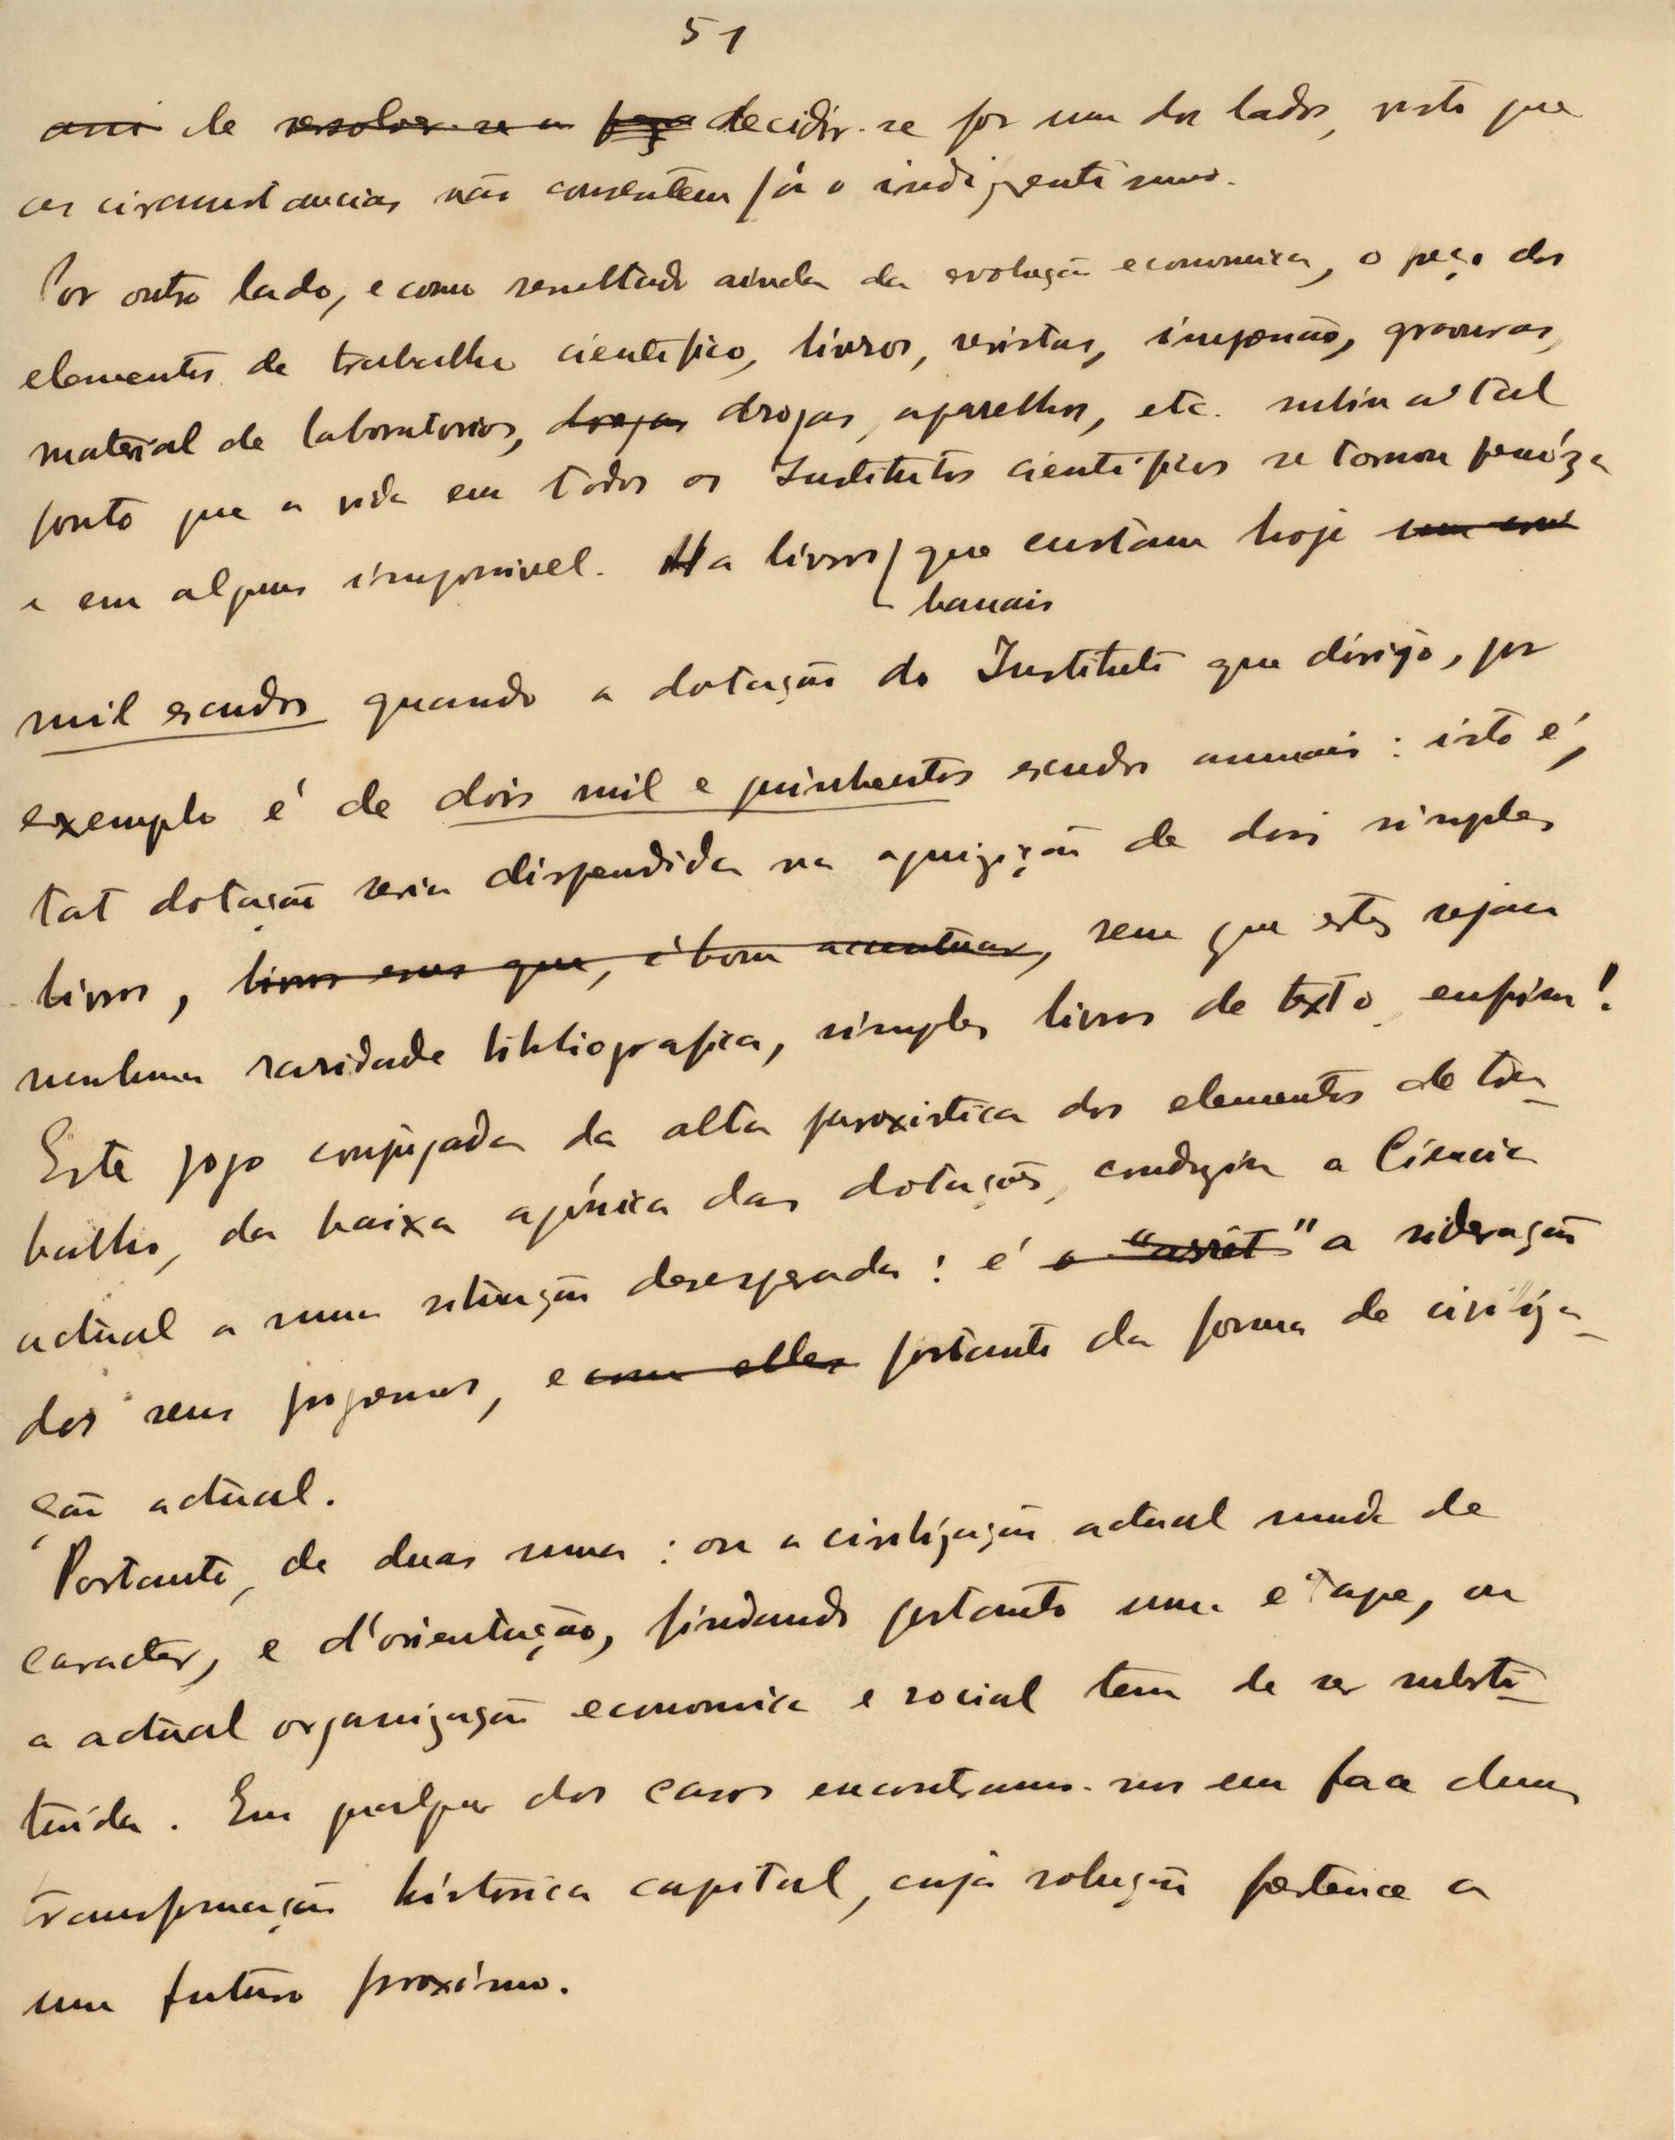 51
de decidir-se por um dos lados, visto que
as circunstancias não consentem já o indigentismo.
Por outro lado, e como resultado ainda da evolução economica, o preço dos
elementos de trabalho cientifico, livros, revistas, impressão, gravuras,
material de laboratorios, drogas drogas, aparelhos, etc. subiu a tal
ponto que a vida em todos os Institutos cientificos se tornou penóza
e em alguns impossivel. Ha livros que custam hoje
banais
mil escudos quando a dotação do Instituto que dirijo, por
exemplo é de dois mil e quinhentos escudos anuais: isto é,
tal dotação seria dispendida na aquizição de dois simples
livros, livros esses que, é bom accentuar, sem que estes sejam
nenhuma raridade bibliografica, simples livros de texto enfim!
Este jogo conjugado da alta paroxistica dos elementos de tra-
balho, da baixa agónica das dotações, conduziu a Ciencia
actual a uma situação desesperada: é a sideração
dos seus progressos, e com elles portanto da forma de civiliza-
ção actual.
Portanto, de duas uma: ou a civilização actual muda de
caracter, e d'orientação, findando portanto uma etape, ou
a actual organização economica e social tem de ser substi-
tuida. Em qualquer dos casos encontramo-nos em face duma
transformação historica capital, cuja solução pertence a
um futuro proximo.